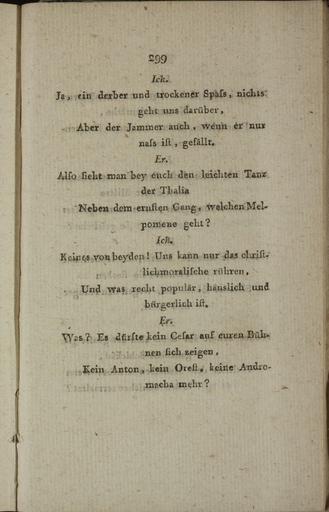 299
Ich.
Ja, ein derber und trockener Spaſs, nichts
geht uns darüber,
Aber der Jammer auch, wenn er nur
naſs iſt, gefällt.
Er.
Alſo ſieht man bey euch den leichten Tanz
der Thalia
Neben dem ernſten Gang, welchen Mel-
pomene geht?
Ich.
Keines von beyden! Uns kann nur das chriſt-
lichmoraliſche rühren,
Und was recht populär, häuslich und
bürgerlich iſt.
Er.
Was? Es dürfte kein Ceſar auf euren Büh-
nen ſich zeigen,
Kein Anton, kein Oreſt, keine Andro-
macha mehr?